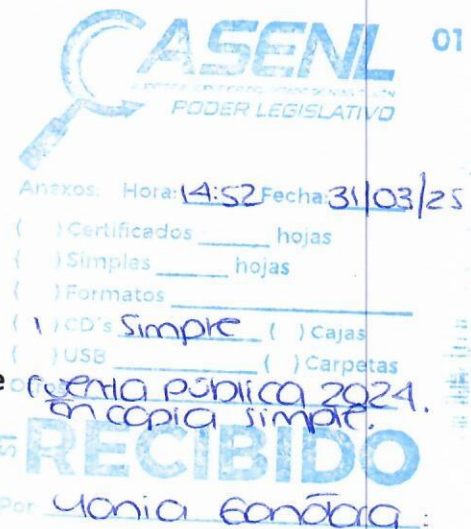 ASENL 01
PODER LEGISLATIVO
Anexos: Hora: 14:52 Fecha: 31/03/25
( ) Certificados ______ hojas
( ) Simples ______ hojas
( ) Formatos ______
( 1 ) CD's Simple ( ) Cajas
( ) USB ______ ( ) Carpetas
e Otros cuenta pública 2024.
en copia simple.
RECIBIDO
Por